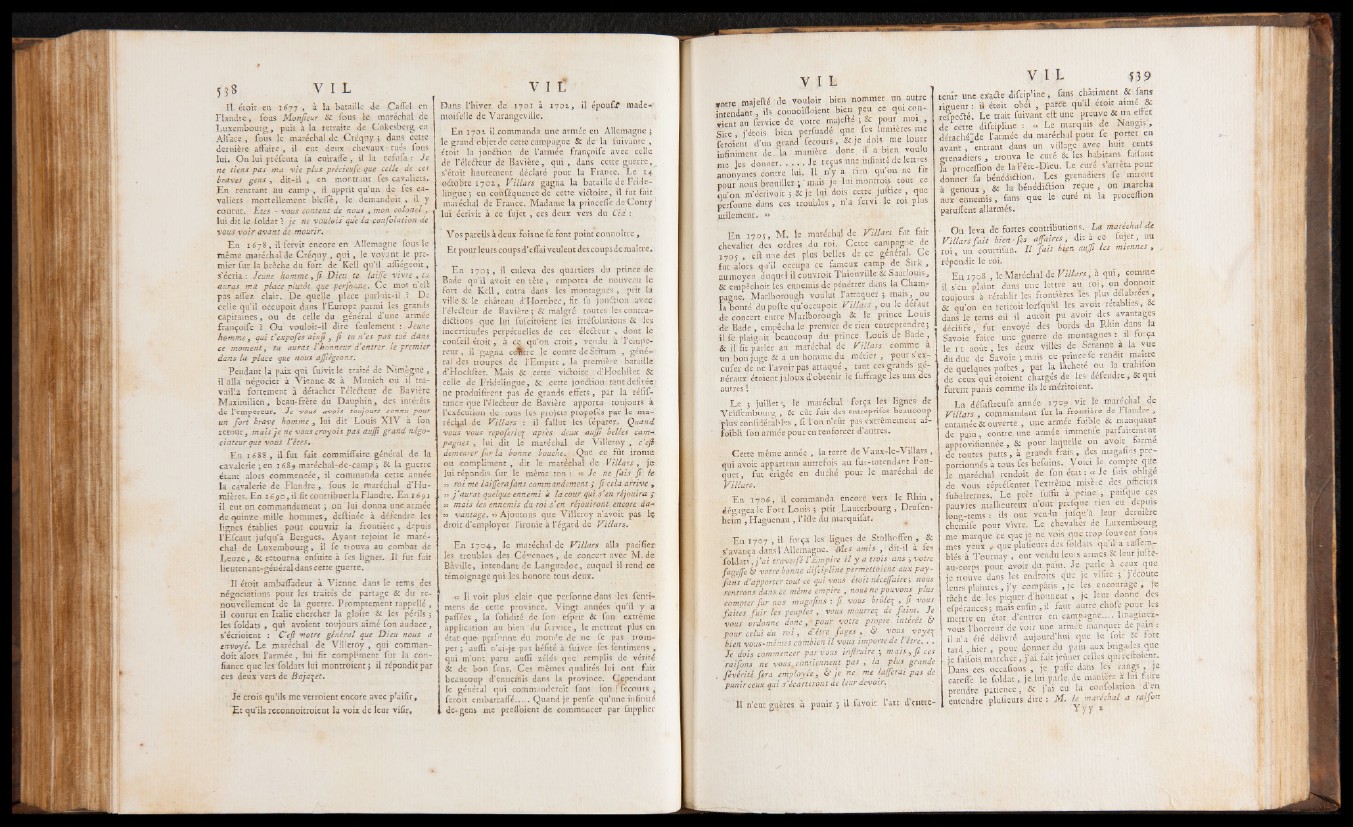 538 V I L
Il étoit en 1677 , à la bataille de Caſſel en
Flandre, ſous Monſieur & ſous le maréchal de
Luxembourg, puis à la retraite de Cokesberg en
Alſace, ſous le maréchal de Créquy ; dans cette
dernière affaire, il eut deux chevaux tués ſous
lui. On lui préſenta ſa cuiraſſe, il la refuſa : Je
ne tiens pas ma vie plus précieuſe que celle de ces
braves gens, dit-il , en montrant ſes cavaliers.
En rentrant au camp, il apprit qu'un de ſes ca-
valiers mortellement bleſſé, le demandoit , il y
courut. Etes - vous content de nous , mon colonel ,
lui dit le ſoldat ? je ne voulois que la conſolation de
vous voir avant de mourir.
En 1678, il ſervit encore en Allemagne ſous le
même maréchal de Créquy , qui , le voyant le pre-
mier ſur la brêche du fort de Kell qu'il aſſiégeoit,
s'écria : Jeune homme , ſi Dieu te laiſſe vivre , tu
auras ma place plutôt que perſonne. Ce mot n'eſt
pas aſſez clair. De quelle place parloit-il ? De
celle qu'il occupoit dans l'Europe parmi les grands
capitaines , ou de celle du général d'une armée
françoiſe ? Ou vouloit-il dire ſeulement : Jeune
homme, qui t'expoſes ainſi , ſi tu n'es pas tué dans
ce moment, tu auras l'honneur d'entrer le premier
dans la place que nous aſſiégeons.
Pendant la paix qui ſuivit le traité de Nimègne ,
il alla négocier à Vienne & à Munich où il tra-
vailla fortement à détacher l'électeur de Bavière
Maximilien, beau-frère du Dauphin, des intérêts
de l'empereur. Je vous avois toujours connu pour
un fort brave homme, lui dit Louis XIV à ſon
retour, mais je ne vous croyois pas auſſi grand négo-
ciateur que vous l'êtes.
En 1688 , il fut fait commiſſaire général de la
cavalerie ; en 1689 maréchal-de-camp ; & la guerre
étant alors commencée, il commanda cette année
la cavalerie de Flandre, ſous le maréchal d'Hu-
mières. En 1690, il fit contribuer la Flandre. En 1691
il eut un commandement ; on lui donna une armée
de quinze mille hommes, deſtinée à défendre les
lignes établies pour couvrir la frontière , depuis
l'Eſcaut juſqu'à Bergues. Ayant rejoint le maré-
chal de Luxembourg, il ſe trouva au combat de
Leuze, & retourna enſuite à ſes lignes. Il fut fait
lieutenant-général dans cette guerre.
Il étoit ambaſſadeur à Vienne dans le tems des
négociations pour les traités de partage & du re-
nouvellement de la guerre. Promptement rappellé ,
il courut en Italie chercher la gloire & les périls ;
les ſoldats , qui avoient toujours aimé ſon audace,
s'écrioient : C'eſt notre général que Dieu nous a
envoyé. Le maréchal de Villeroy , qui comman-
doit alors l'armée, lui fit compliment ſur la con-
fiance que les ſoldats lui montroient ; il répondit par
ces deux vers de Bajazet.
Je crois qu'ils me verroient encore avec plaiſir,
Et qu'ils reconnoîtroient la voix de leur viſir,
V I L
Dans l'hiver de 1701 à 1702, il épouſa made-
moiſelle de Varangeville.
En 1702 il commanda une armée en Allemagne ;
le grand objet de cette campagne & de la ſuivante ,
étoit la jonction de l'armée françoiſe avec celle
de l'électeur de Bavière, qui , dans cette guerre,
s'étoit hautement déclaré pour la France. Le 14
octobre 1702, Villars gagna la bataille de Fride-
lingue ; en conſéquence de cette victoire, il fut fait
maréchal de France. Madame la princeſſe de Conty
lui écrivit à ce ſujet , ces deux vers du Cid :
Vos pareils à deux fois ne ſe font point connoître,
Et pour leurs coups d'eſſai veulent des coups de maître.
En 1703 , il enleva des quartiers du prince de
Bade qu'il avoit en tête, emporta de nouveau le
fort de Kell , entra dans les montagnes , prit la
ville & le château d'Hornbec, fit ſa jonction avec
l'électeur de Bavière ; & malgré toutes les contra-
dictions que lui ſuſcitoient les irréſolutions & les
incertitudes perpétuelles de cet électeur , dont le
conſeil étoit , à ce qu'on croit, vendu à l'empe-
reur, il gagna contre le comte de Stirum , géné-
ral des troupes de l'Empire, la première bataille
d'Hochſtet. Mais & cette victoire d'Hochſtet &
celle de Fridelingue, & cette jonction tant deſirée
ne produiſirent pas de grands effets , par la réſiſ-
tance que l'électeur de Bavière apporta toujours à
l'exécution de tous les projets propoſés par le ma-
réchal de Villars : il fallut les ſéparer. Quand
vous vous repoſeriez après deux auſſi belles cam-
pagnes , lui dit le maréchal de Villeroy , c'eſt
demeurer ſur la bonne bouche. Que ce fût ironie
ou compliment , dit le maréchal de Villars , je
lui répondis ſur le même ton : « Je ne ſais ſi le
» roi me laiſſera ſans commandement ; ſi cela arrive ,
» j'aurai quelque ennemi à la cour qui s'en réjouira ;
» mais les ennemis du roi s'en réjouiront encore da-
» vantage. » Ajoutons que Villeroy n'avoit pas le
droit d'employer l'ironie à l'égard de Villars.
En 1704, le maréchal de Villars alla pacifier
les troubles des Cévennes, de concert avec M. de
Bâville, intendant de Languedoc, auquel il rend ce
témoignage qui les honore tous deux.
« Il voit plus clair que perſonne dans les ſenti-
mens de cette province. Vingt années qu'il y a
paſſées , la ſolidité de ſon eſprit & ſon extrême
application au bien du ſervice, le mettent plus en
état que perſonne du monde de ne ſe pas trom-
per ; auſſi n'ai-je pas héſité à ſuivre ſes ſentimens ,
qui m'ont paru auſſi zélés que remplis de vérité
& de bon ſens. Ces mêmes qualités lui ont fait
beaucoup d'ennemis dans la province. Cependant
le général qui commanderoit ſans ſon ſecours ,
ſeroit embarraſſé..... Quand je penſe qu'une infinité
de gens me preſſoient de commencer par ſupplier
V I L
votre majeſté de vouloir bien nommer un autre
intendant ; ils connoiſſoient bien peu ce qui con-
vient au ſervice de votre majeſté ; & pour moi ,
Sire, j'étois bien perſuadé que ſes lumières me
ſeroient d'un grand ſecours, & je dois me louer
infiniment de la manière dont il a bien voulu
me les donner...... Je reçus une infinité de lettres
anonymes contre lui. Il n'y a rien qu'on ne fît
pour nous brouiller ; mais je lui montrois tout ce
qu'on m'écrivoit ; & je lui dois cette juſtice , que
perſonne dans ces troubles , n'a ſervi le roi plus
utilement. »
En 1705, M. le maréchal de Villars fut fait
chevalier des ordres du roi. Cette campagne de
1705 , eſt une des plus belles de ce général. Ce
fut alors qu'il occupa ce fameux camp de Sirk ,
au moyen duquel il couvroit Thionville & Saarlouis,
& empêchoit les ennemis de pénétrer dans la Cham-
pagne. Marlborough voulut l'attaquer ; mais , ou
la bonté du poſte qu'occupoit Villars , ou le défaut
de concert entre Marlborough & le prince Louis
de Bade , empêcha le premier de rien entreprendre ;
il ſe plaignit beaucoup du prince Louis de Bade ,
& il fit parler au maréchal de Villars comme à
un bon juge & à un homme du métier , pour s'ex-
cuſer de ne l'avoir pas attaqué , tant ces grands gé-
néraux étoient jaloux d'obtenir le ſuffrage les uns des
autres !
Le 3 juillet, le maréchal força les lignes de
Veiſſembourg , & eût fait des entrepriſes beaucoup
plus conſidérables , ſi l'on n'eût pas extrêmement af-
foibli ſon armée pour en renforcer d'autres.
Cette même année , la terre de Vaux-le-Villars ,
qui avoit appartenu autrefois au ſur-intendant Fou-
quet, fut érigée en duché pour le maréchal de
Villars.
En 1706, il commanda encore vers le Rhin ,
dégagea le Fort Louis ; prit Lauterbourg , Druſen-
heim, Haguenau, l'iſle du marquiſat.
En 1707 , il força les lignes de Stolhoffen , &
s'avança dans l'Allemagne. Mes amis , dit-il à ſes
ſoldats, j'ai traverſé l'Empire il y a trois ans ; votre
ſageſſe & votre bonne diſcipline permettoient aux pay-
ſans d'apporter tout ce qui vous étoit néceſſaire ; nous
rentrons dans ce même empire , nous ne pouvons plus
compter ſur nos magaſins : ſi vous brûlez , ſi vous
faites fuir les peuples , vous mourrez de faim. Je
vous ordonne donc , pour votre propre intérêt &
pour celui du roi , d'être ſages , & vous voyez
bien vous-mêmes combien il vous importe de l'être. . .
Je dois commencer par vous inſtruire ; mais, ſi ces
raiſons ne vous contiennent pas , la plus grande
ſévérité ſera employée, & je ne me laſſerai pas de
punir ceux qui s'écarteront de leur devoir.
Il n'eut guères à punir ; il ſavoit l'art d'entre-
V I L 539
tenir une exacte diſcipline, ſans châtiment & ſans
rigueur : il étoit obéi , parce qu'il étoit aimé &
reſpecté. Le trait ſuivant eſt une preuve & un effet
de cette diſcipline : « Le marquis de Nangis ,
détaché de l'armée du maréchal pour ſe porter en
avant , entrant dans un village avec huit cents
grenadiers , trouva le curé & les habitans faiſant
la proceſſion de la Fête-Dieu. Le curé s'arrêta pour
donner ſa bénédiction. Les grenadiers ſe mirent
à genoux , & la bénédiction reçue , on marcha
aux ennemis , ſans que le curé ni la proceſſion
paruſſent allarmés.
On leva de fortes contributions. La maréchale de
Villars fait bien ſes affaires , dit à ce ſujet , au
roi, un courtiſan. Il fait bien auſſi les miennes ,
répondit le roi.
En 1708 , le Maréchal de Villars, à qui, comme
il s'en plaint dans une lettre au roi, on donnoit
toujours à rétablir les frontières les plus délabrées ,
& qu'on en retiroit lorſqu'il les avoit rétablies, &
dans le tems où il auroit pu avoir des avantages
déciſifs , fut envoyé des bords du Rhin dans la
Savoie faire une guerre de montagnes : il força
le 11 août , les deux villes de Sezanne à la vue
du duc de Savoie ; mais ce prince ſe rendit maître
de quelques poſtes , par la lâcheté ou la trahiſon
de ceux qui étoient chargés de les défendre , & qui
furent punis comme ils le méritoient.
La déſaſtreuſe année 1709 vit le maréchal de
Villars , commandant ſur la frontière de Flandre ,
entamée & ouverte , une armée foible & manquant
de pain , contre une armée immenſe parfaitement
approviſionnée , & pour laquelle on avoit formé
de toutes parts , à grands frais , des magaſins pro-
portionnés à tous ſes beſoins. Voici le compte que
le maréchal rendoit de ſon état : « Je ſuis obligé
de vous repréſenter l'extrême miſère des officiers
ſubalternes. Le prêt ſuffit à peine , puiſque ces
pauvres malheureux n'ont preſque rien eu depuis
long-tems : ils ont vendu juſqu'à leur dernière
chemiſe pour vivre. Le chevalier de Luxembourg
me marque ce que je ne vois que trop ſouvent ſous
mes yeux , que pluſieurs des ſoldats qu'il a raſſem-
blés à Tournay , ont vendu leurs armes & leur juſte-
au-corps pour avoir du pain. Je parle à ceux que
je trouve dans les endroits que je viſite ; j'écoute
leurs plaintes , j'y compatis , je les encourage , je
tâche de les piquer d'honneur , je leur donne des
eſpérances ; mais enfin, il faut autre choſe pour les
mettre en état d'entrer en campagne.... Imaginez-
vous l'horreur de voir une armée manquer de pain :
il n'a été délivré aujourd'hui que le ſoir & fort
tard , hier , pour donner du pain aux brigades que
je faiſois marcher , j'ai fait jeûner celles qui reſtoient.
Dans ces occaſions , je paſſe dans les rangs , je
careſſe le ſoldat, je lui parle de manière à lui faire
prendre patience, & j'ai eu la conſolation d'en
entendre pluſieurs dire : M. le maréchal a raiſon
Y y y 2